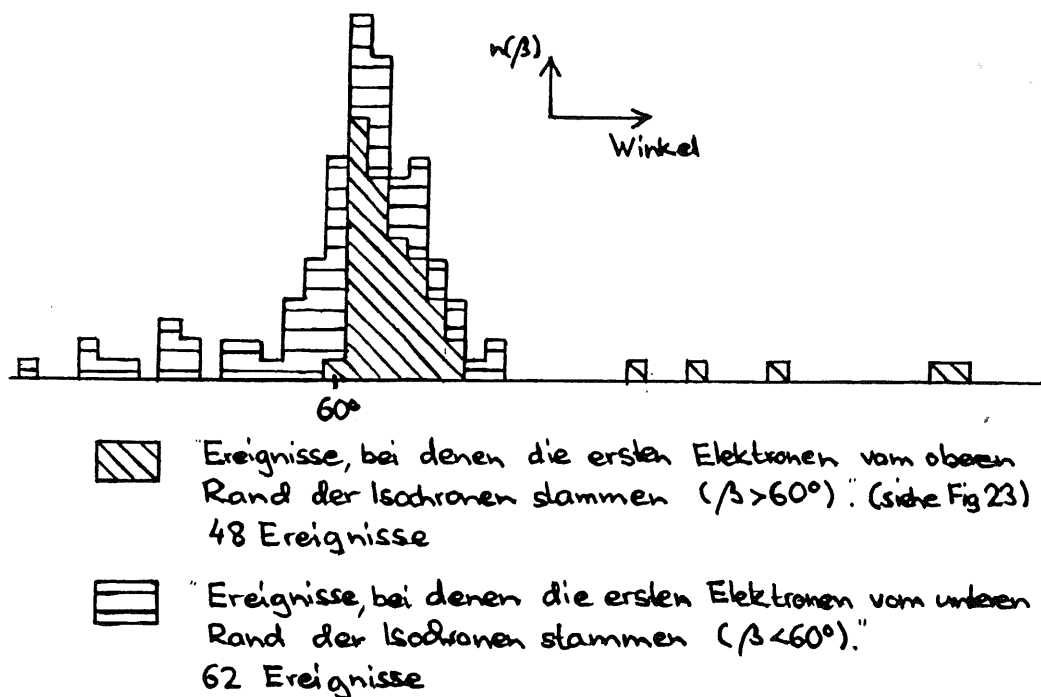 n(β)
Winkel
60°
"Ereignisse, bei denen die ersten Elektronen vom oberen
Rand der Isochronen stammen (β>60°)". (siehe Fig 23)
48 Ereignisse
"Ereignisse, bei denen die ersten Elektronen vom unteren
Rand der Isochronen stammen (β<60°)."
62 Ereignisse